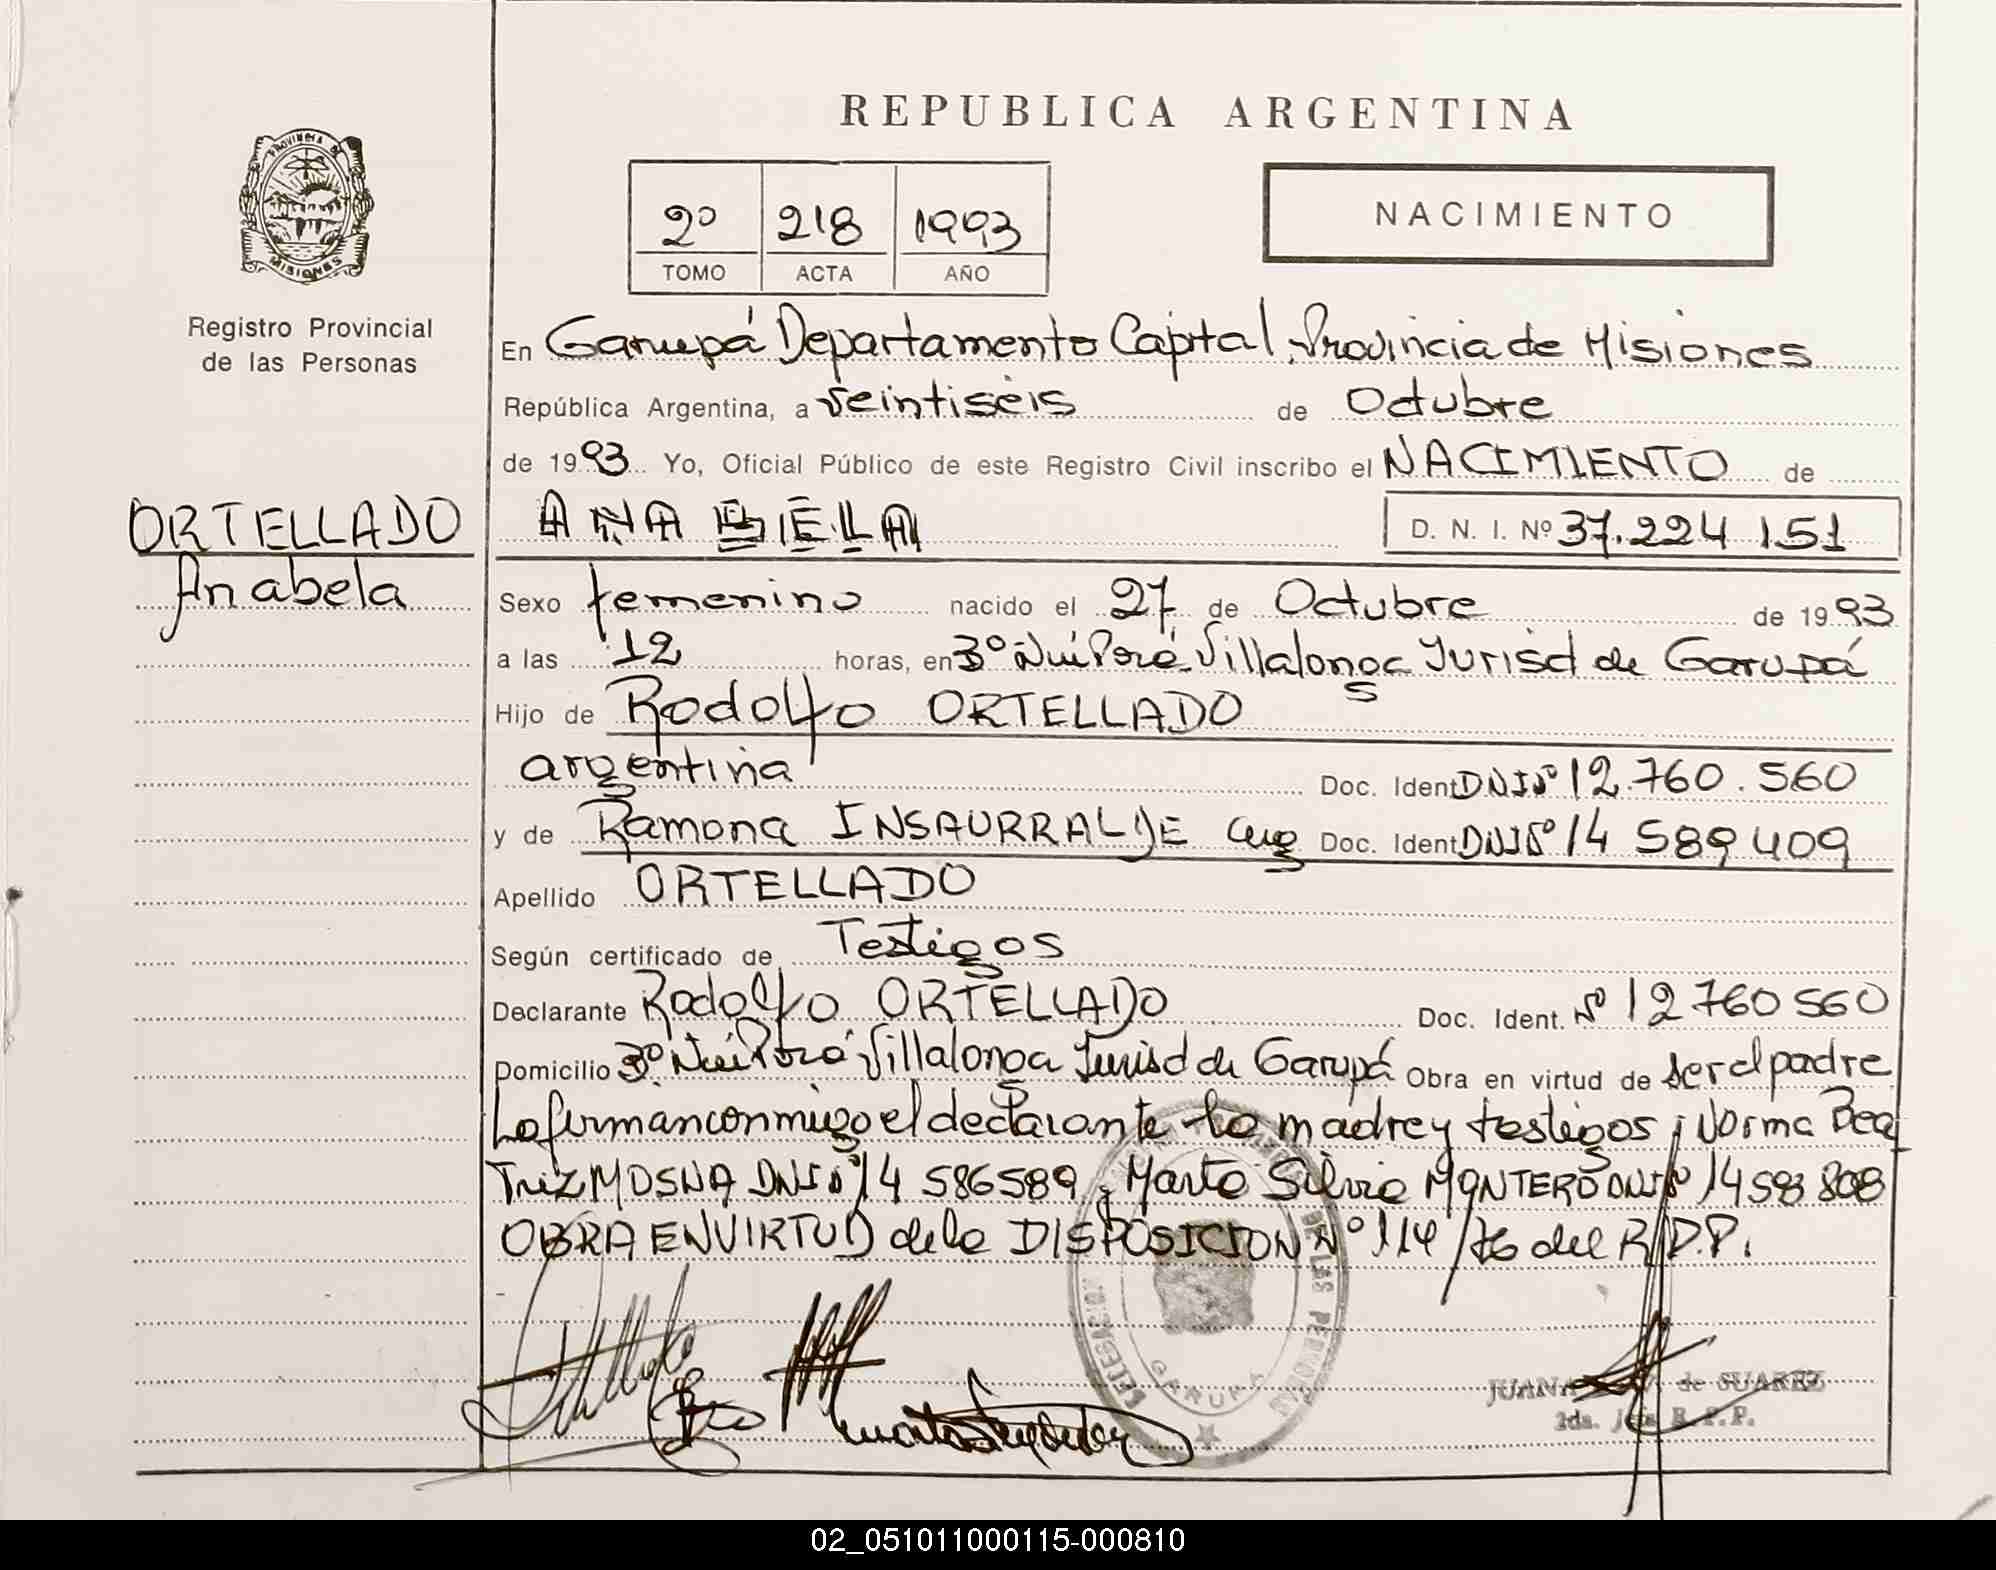 REPUBLICA ARGENTINA
PROVINCIA DE
MISIONES
Registro Provincial
de las Personas
2º 218 1993
TOMO ACTA AÑO
NACIMIENTO
En Garupá Departamento Capital, Provincia de Misiones
República Argentina, a veintiséis de Octubre
de 1993 Yo, Oficial Público de este Registro Civil inscribo el NACIMIENTO de
ANABELA D. N. I. Nº 37.224 151
ORTELLADO
Anabela
Sexo femenino nacido el 27 de Octubre de 1993
a las 12 horas, en 3º Ñuí Porá Villalonga Jurisd de Garupá
Hijo de Rodolfo ORTELLADO
argentina Doc. Ident DNI Nº 12.760.560
y de Ramona INSAURRALDE arg Doc. Ident DNI Nº 14 589 409
Apellido ORTELLADO
Según certificado de Testigos
Declarante Rodolfo ORTELLADO Doc. Ident. Nº 12 760 560
Domicilio 3º Ñuí Porá Villalonga Jurisd de Garupá Obra en virtud de ser el padre
Lo firman conmigo el declarante la madre y testigos; Norma Bea
Triz MOSNA DNI Nº 14 586589, Marta Silvia MONTERO DNI Nº 14 593 808
OBRA EN VIRTUD de la DISPOSICION Nº 114/76 del R.P.P.
DELEGACION DE LAS PERSONAS
GARUPA
JUANA de SUAREZ
2da. Jefe R.P.P.
02_051011000115-000810